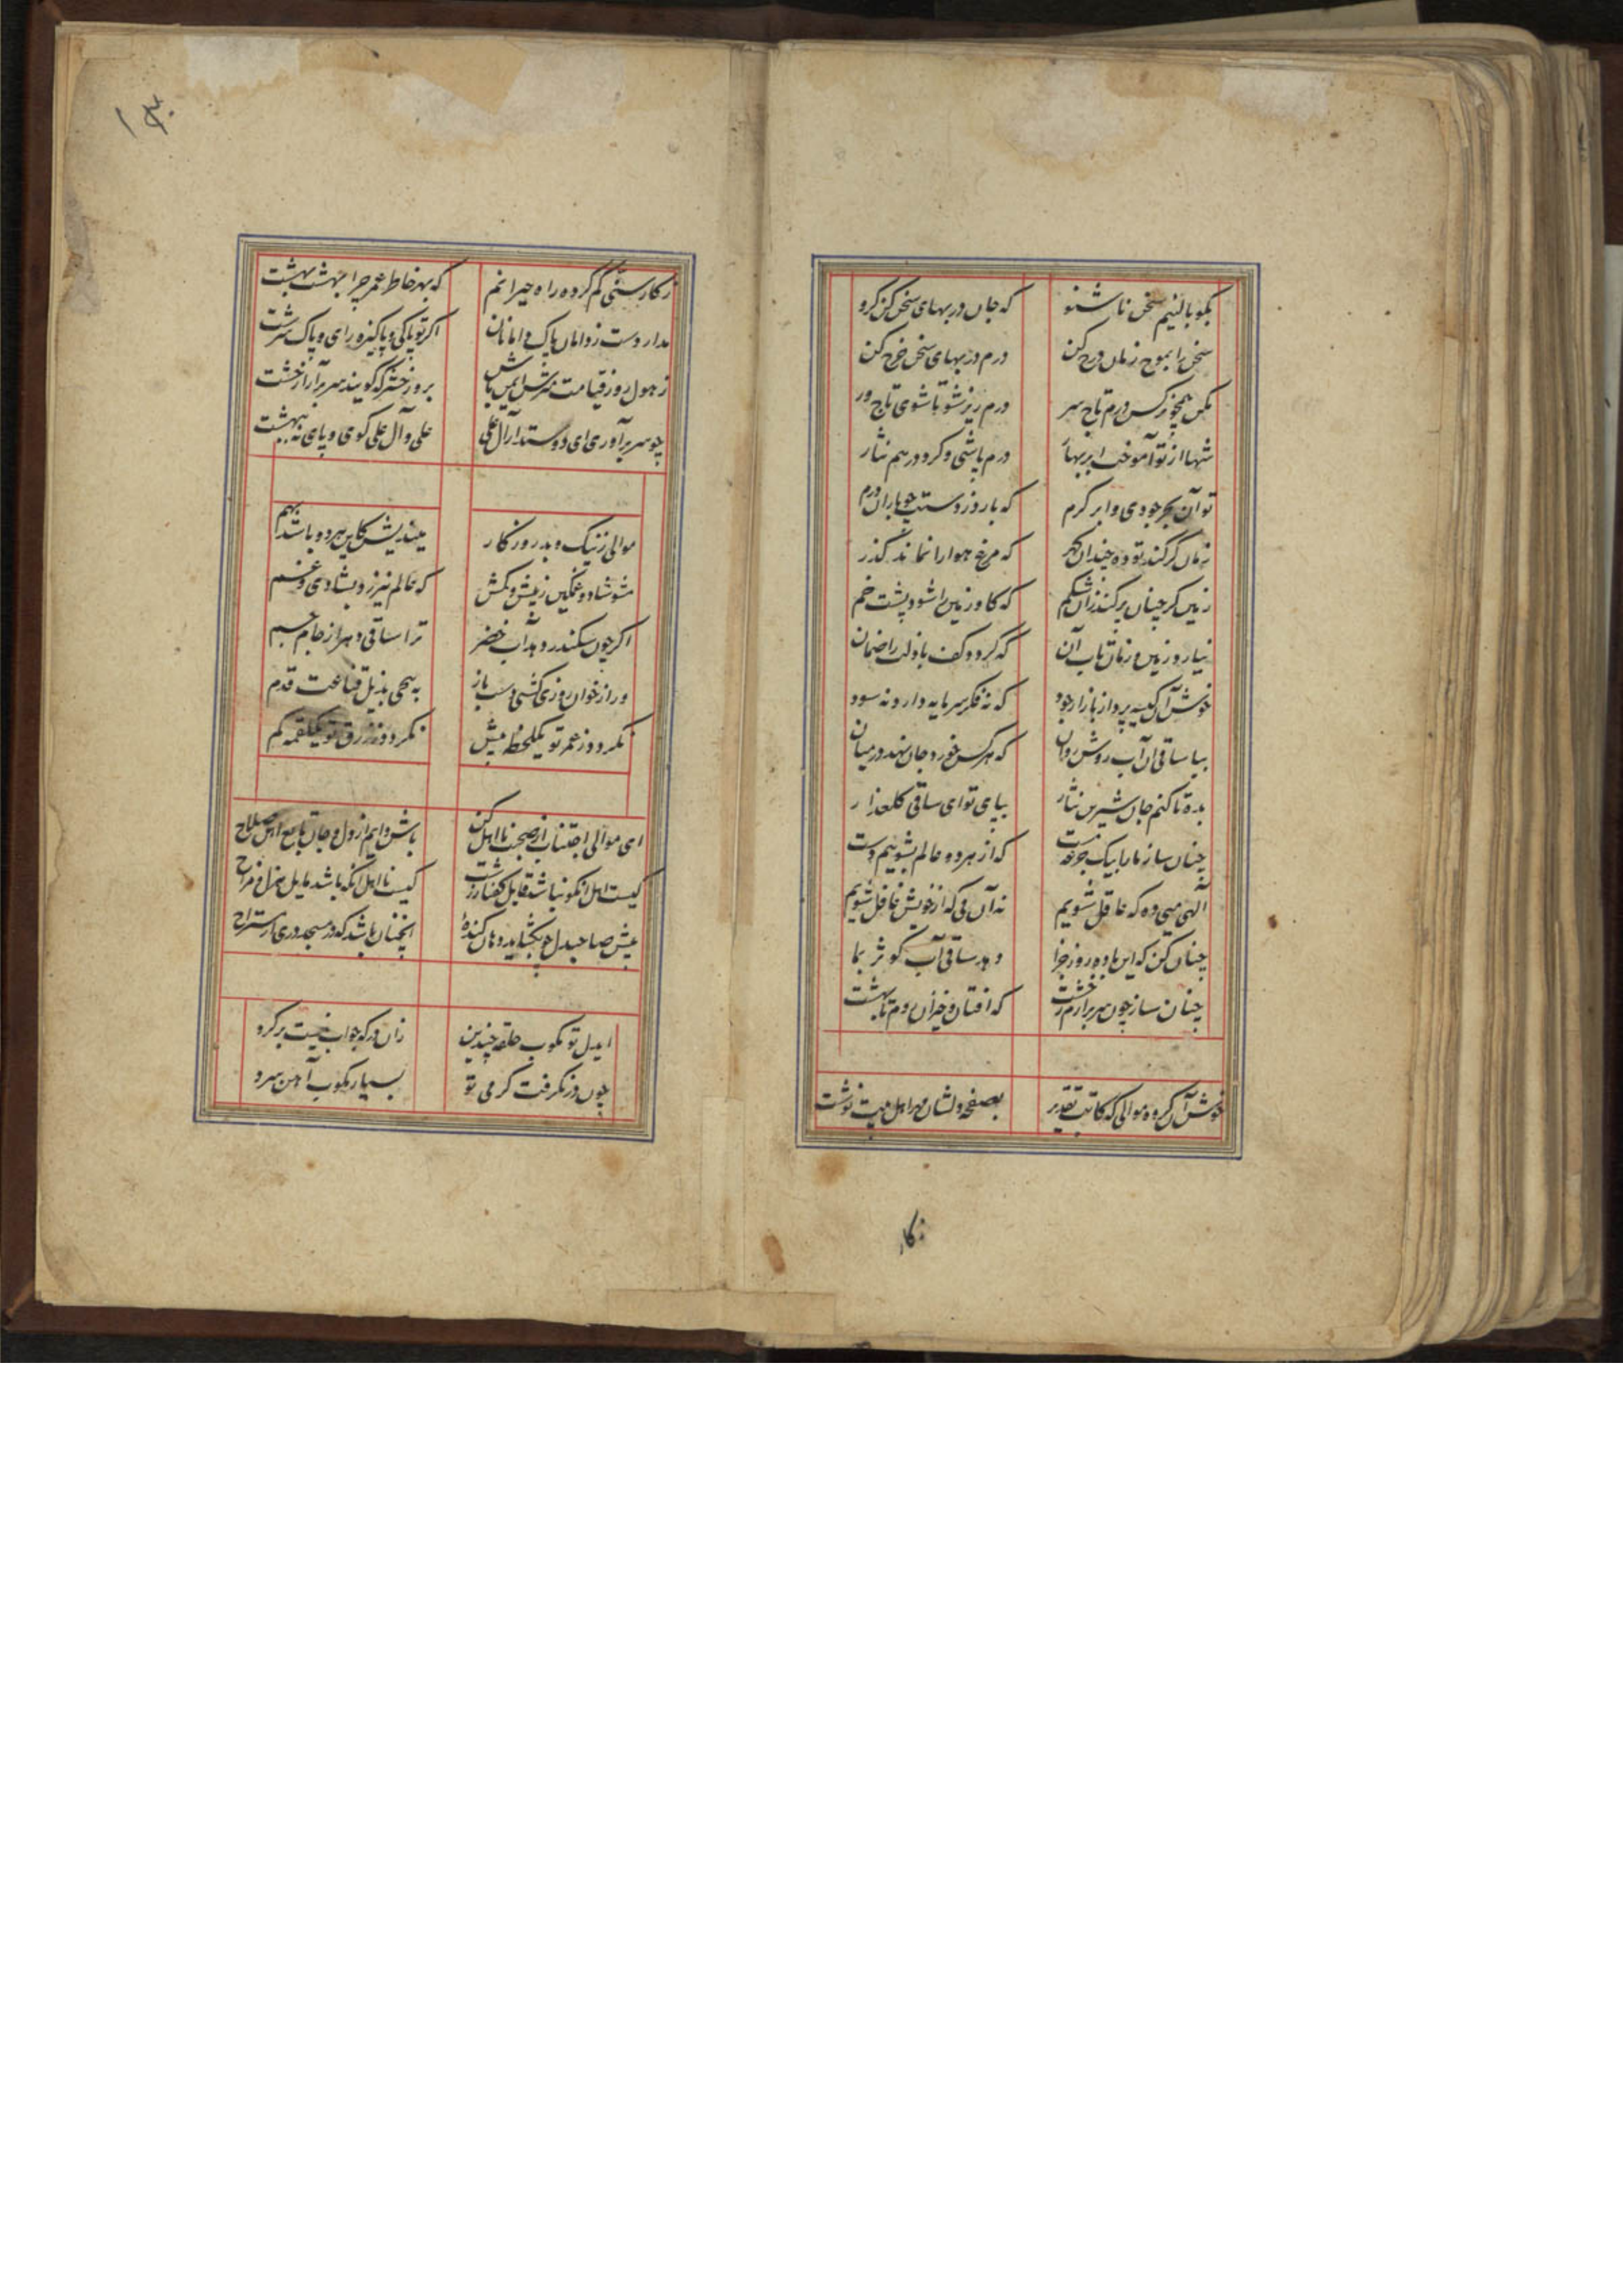 بگو بالئیم سخن ناشنو که جان در بهای سخن کن گرو
سخن را بموج زمان درج کن درم در بهای سخن خرج کن
مکن همچو نرکس درم تاج سر درم ریز شو تا شوی تاج ور
شها از تو آموخت ابر بهار درم پاشی و کرد درهم نثار
تو آن بحر جودی و ابر کرم که بارد ز دستت چو باران درم
زمان گر کند تو ده چندان گهر که مرغ هوا را نماند گذر
زمین گر چنان پر کند زان شکم که کاو زمین را شود پشت خم
نیارد زمین و زمان تاب آن که گردد کف باذلت را ضمان
خوش آن کیسه پرداز بازار جود که نه فکر سرمایه دارد نه سود
بیا ساقی آن آب روشن روان که هر کس خورد جان نهد در میان
بده تا کنم جان شیرین نثار بپای تو ای ساقی کلعذار
چنان ساز ما را بیک جرعه مست که از هر دو عالم بشوییم دست
الهی میی ده که عاقل شویم نه آن می که از خویش غافل شویم
چنان کن که این باده روز جزا دهد ساقی آب کوثر بما
چنان ساز چون سر برارم ز خشت که افتان و خیزان روم تا بهشت
خوش آن گروه موالی که کاتب تقدیر بصفحه دلشان مهر اهل بیت نوشت
ز کار
۱۳۰
ز کار سنّی گم کرده راه حیرانم که بهر خاطر عمر چرا بهشت بهشت
مدار دست ز دامان پاک دامانان اگر تو پاکی و پاکیزه رای و پاک سرشت
ز هول روز قیامت مترس ایمن باش بروز حشر که گویند سر برآر از خشت
چو سر برآوری ای دوستدار آل علی علی و آل علی گوی و پای نه ببهشت
موالی ز نیک و بد روزکار میندیش کاین هر دو باشد بهم
مشو شاد و غمگین ز بیش و کمش که عالم نیرزد بشادی و غم
اگر چون سکندر دهد آب خضر ترا ساقی دهر از جام جم
ور از خوان روزی کشی دست باز نه پیچی بذیل قناعت قدم
نگردد ز عمر تو یکلحظه بیش نگردد ز رزق تو یکلقمه کم
ای موالی اجتناب از صحبت نااهل کن باش دایم از دل و جان تابع اهل صلاح
کیست اهل آنکو نباشد قابل گفتار زشت کیست نااهل آنکه باشد مایل هزل و مزاح
پیش صاحبدل چو بگشاید دهان کنده آنچنان باشد که در مسجد دری از مستراح
ایدل تو مکوب حلقه چندین زان در که جواب نیست برگرد
چون در نگرفت گرمی تو بسیار مکوب آهن سرد